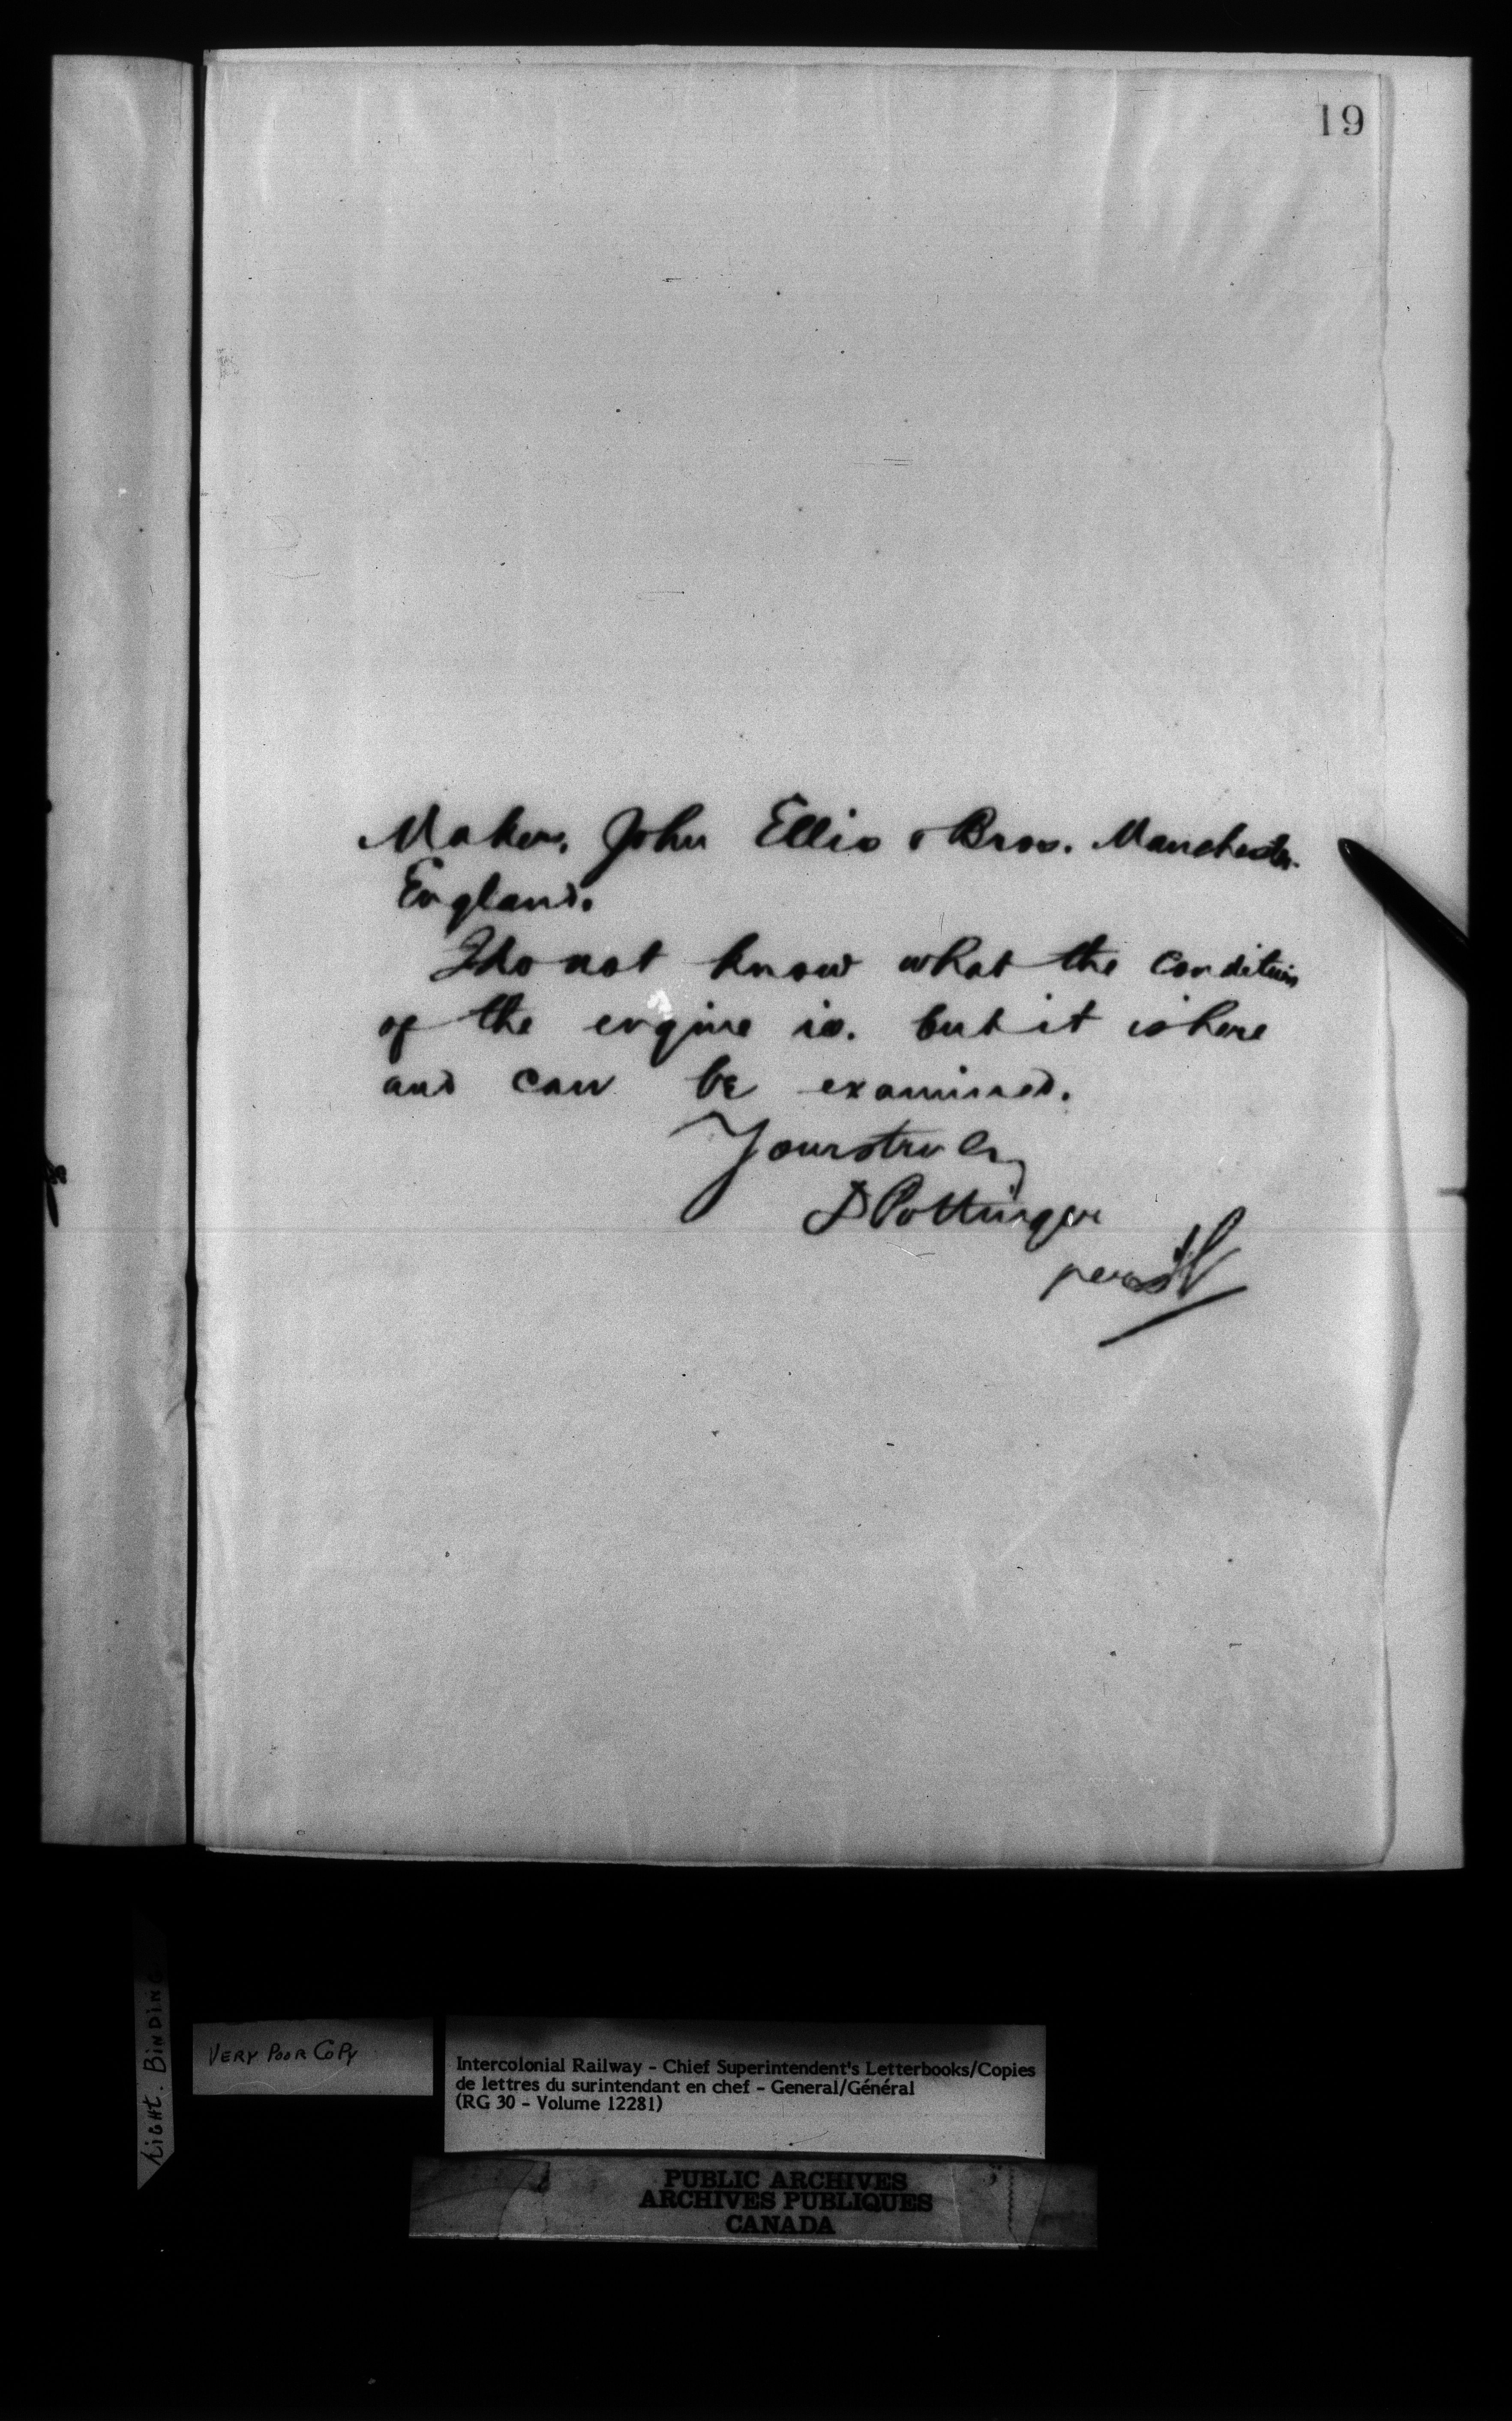 19
Makers, John Ellis & Bros. Manchester.
England.
I do not know what the condition
of the engine is. but it is here
and can be examined.
Yours truly
D Pottinger
per
LIGHT. BINDING
VERY POOR COPY
Intercolonial Railway - Chief Superintendent's Letterbooks/Copies
de lettres du surintendant en chef - General/Général
(RG 30 - Volume 12281)
PUBLIC ARCHIVES
ARCHIVES PUBLIQUES
CANADA